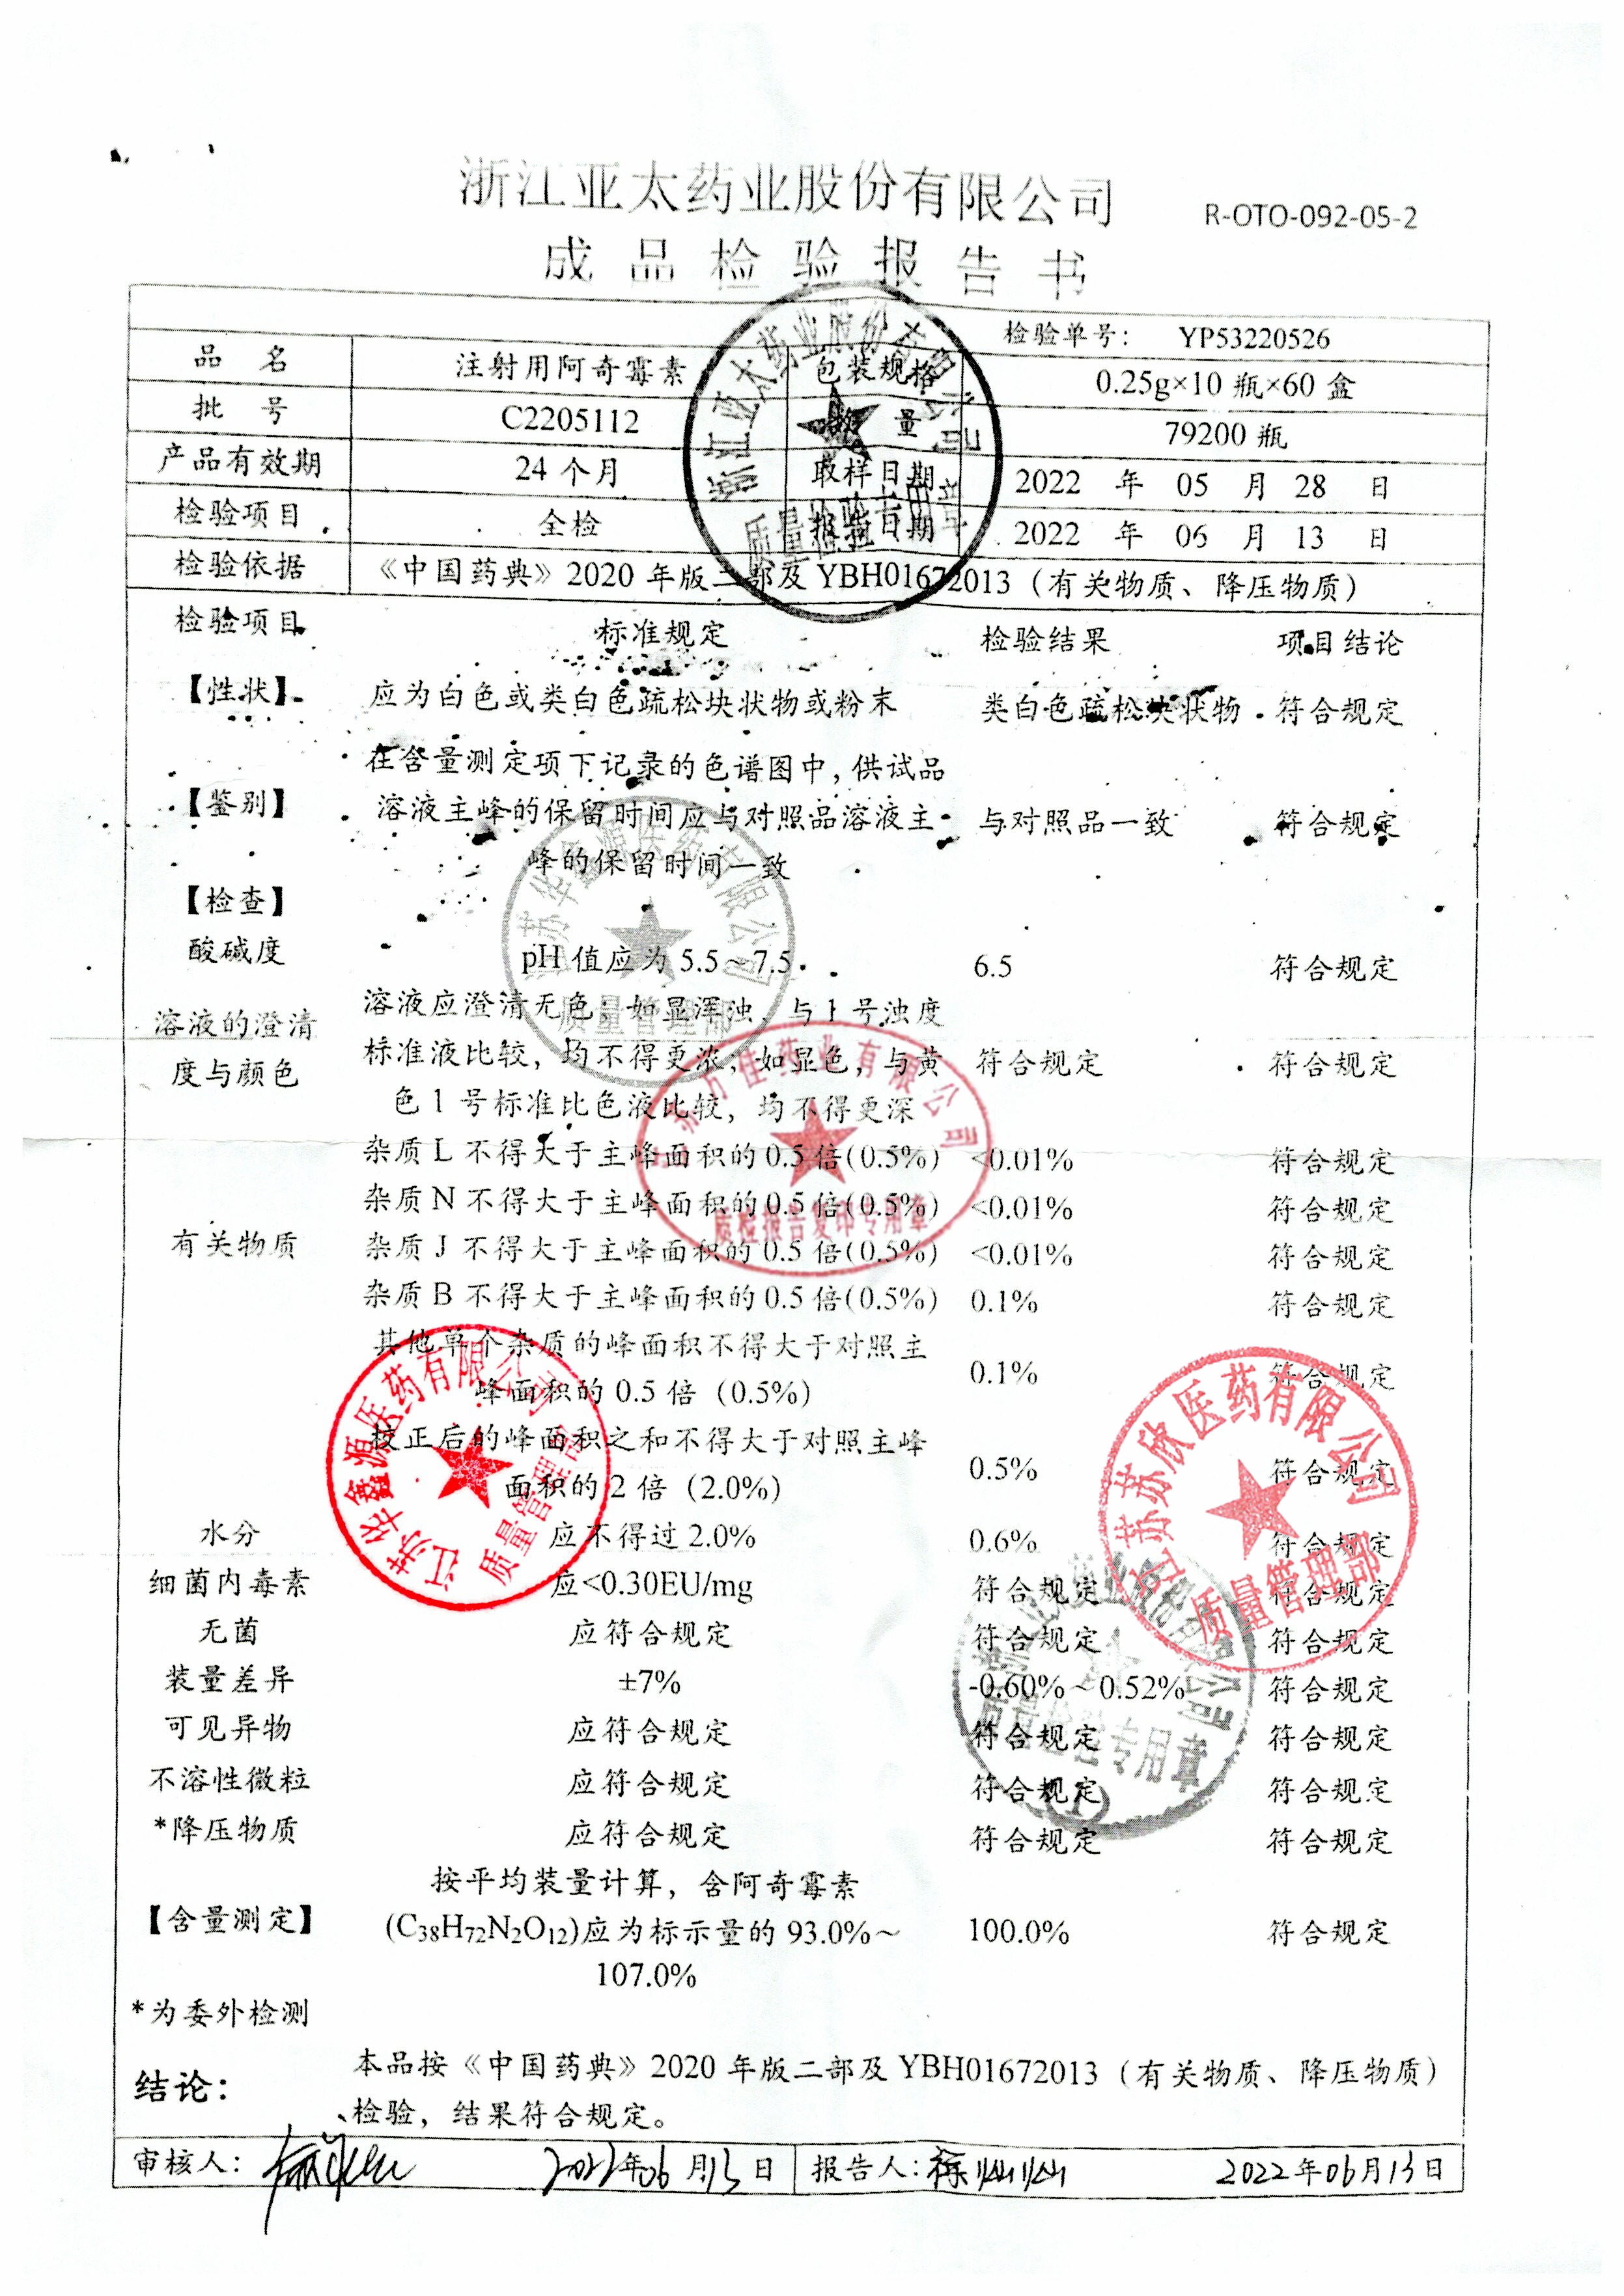 浙江亚太药业股份有限公司
R-OTO-092-05-2
成品检验报告书
检验单号： YP53220526
品 名 注射用阿奇霉素 包装规格 0.25g×10 瓶×60 盒
批 号 C2205112 数 量 79200 瓶
产品有效期 24 个月 取样日期 2022 年 05 月 28 日
检验项目 全检 报告日期 2022 年 06 月 13 日
检验依据 《中国药典》2020 年版二部及 YBH01672013（有关物质、降压物质）
检验项目 标准规定 检验结果 项目结论
【性状】 应为白色或类白色疏松块状物或粉末 类白色疏松块状物 符合规定
在含量测定项下记录的色谱图中，供试品
【鉴别】 溶液主峰的保留时间应与对照品溶液主 与对照品一致 符合规定
峰的保留时间一致
【检查】
酸碱度 pH 值应为 5.5～7.5 6.5 符合规定
溶液应澄清无色；如显浑浊，与 1 号浊度
溶液的澄清
标准液比较，均不得更浓；如显色，与黄 符合规定 符合规定
度与颜色
色 1 号标准比色液比较，均不得更深
杂质 L 不得大于主峰面积的 0.5 倍(0.5%) <0.01% 符合规定
杂质 N 不得大于主峰面积的 0.5 倍(0.5%) <0.01% 符合规定
有关物质 杂质 J 不得大于主峰面积的 0.5 倍(0.5%) <0.01% 符合规定
杂质 B 不得大于主峰面积的 0.5 倍(0.5%) 0.1% 符合规定
其他单个杂质的峰面积不得大于对照主
峰面积的 0.5 倍（0.5%） 0.1% 符合规定
校正后的峰面积之和不得大于对照主峰
面积的 2 倍（2.0%） 0.5% 符合规定
水分 应不得过 2.0% 0.6% 符合规定
细菌内毒素 应<0.30EU/mg 符合规定 符合规定
无菌 应符合规定 符合规定 符合规定
装量差异 ±7% -0.60%～0.52% 符合规定
可见异物 应符合规定 符合规定 符合规定
不溶性微粒 应符合规定 符合规定 符合规定
*降压物质 应符合规定 符合规定 符合规定
按平均装量计算，含阿奇霉素
【含量测定】 (C38H72N2O12)应为标示量的 93.0%～ 100.0% 符合规定
107.0%
*为委外检测
结论： 本品按《中国药典》2020 年版二部及 YBH01672013（有关物质、降压物质）
检验，结果符合规定。
审核人： 2022年06月13日 报告人：徐灿灿 2022年06月13日
浙江亚太药业股份有限公司
质量检验专用章
江苏华鑫源医药有限公司
质量管理部
万佳药业有限公司
质检报告复印专用章
江苏华鑫源医药有限公司
质量管理部
江苏苏欣医药有限公司
质量管理部
质量检验专用章
(1)